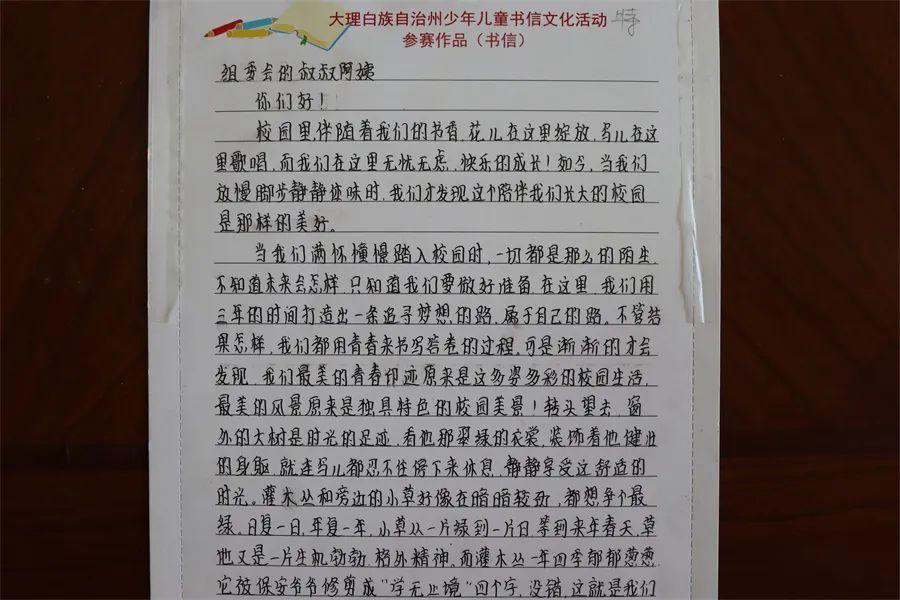 大理白族自治州少年儿童书信文化活动 特
参赛作品（书信）
组委会的叔叔阿姨
你们好！
校园里伴随着我们的书香,花儿在这里绽放,鸟儿在这
里歌唱,而我们在这里无忧无虑,快乐的成长!如今,当我们
放慢脚步静静体味时,我们才发现这个陪伴我们长大的校园
是那样的美好。
当我们满怀憧慢踏入校园时,一切都是那么的陌生
不知道未来会怎样,只知道我们要做好准备,在这里,我们用
三年的时间打造出一条追寻梦想的路,属于自己的路。不管结
果怎样,我们都用青春来书写答卷的过程,可是渐渐的才会
发现,我们最美的青春印迹原来是这多姿多彩的校园生活,
最美的风景原来是独具特色的校园美景!转头望去,窗
外的大树是时光的足迹,看他那翠绿的衣裳,装饰着他健壮
的身躯,就连鸟儿都忍不住停下来休息,静静享受这舒适的
时光。灌木丛和旁边的小草好像在暗暗较劲,都想争个最
绿。日复一日,年复一年,小草从一片绿到一片白,等到来年春天,草
地又是一片生机勃勃,格外精神。而灌木丛一年四季郁郁葱葱
它被保安爷爷修剪成“学无止境”四个字,没错,这就是我们